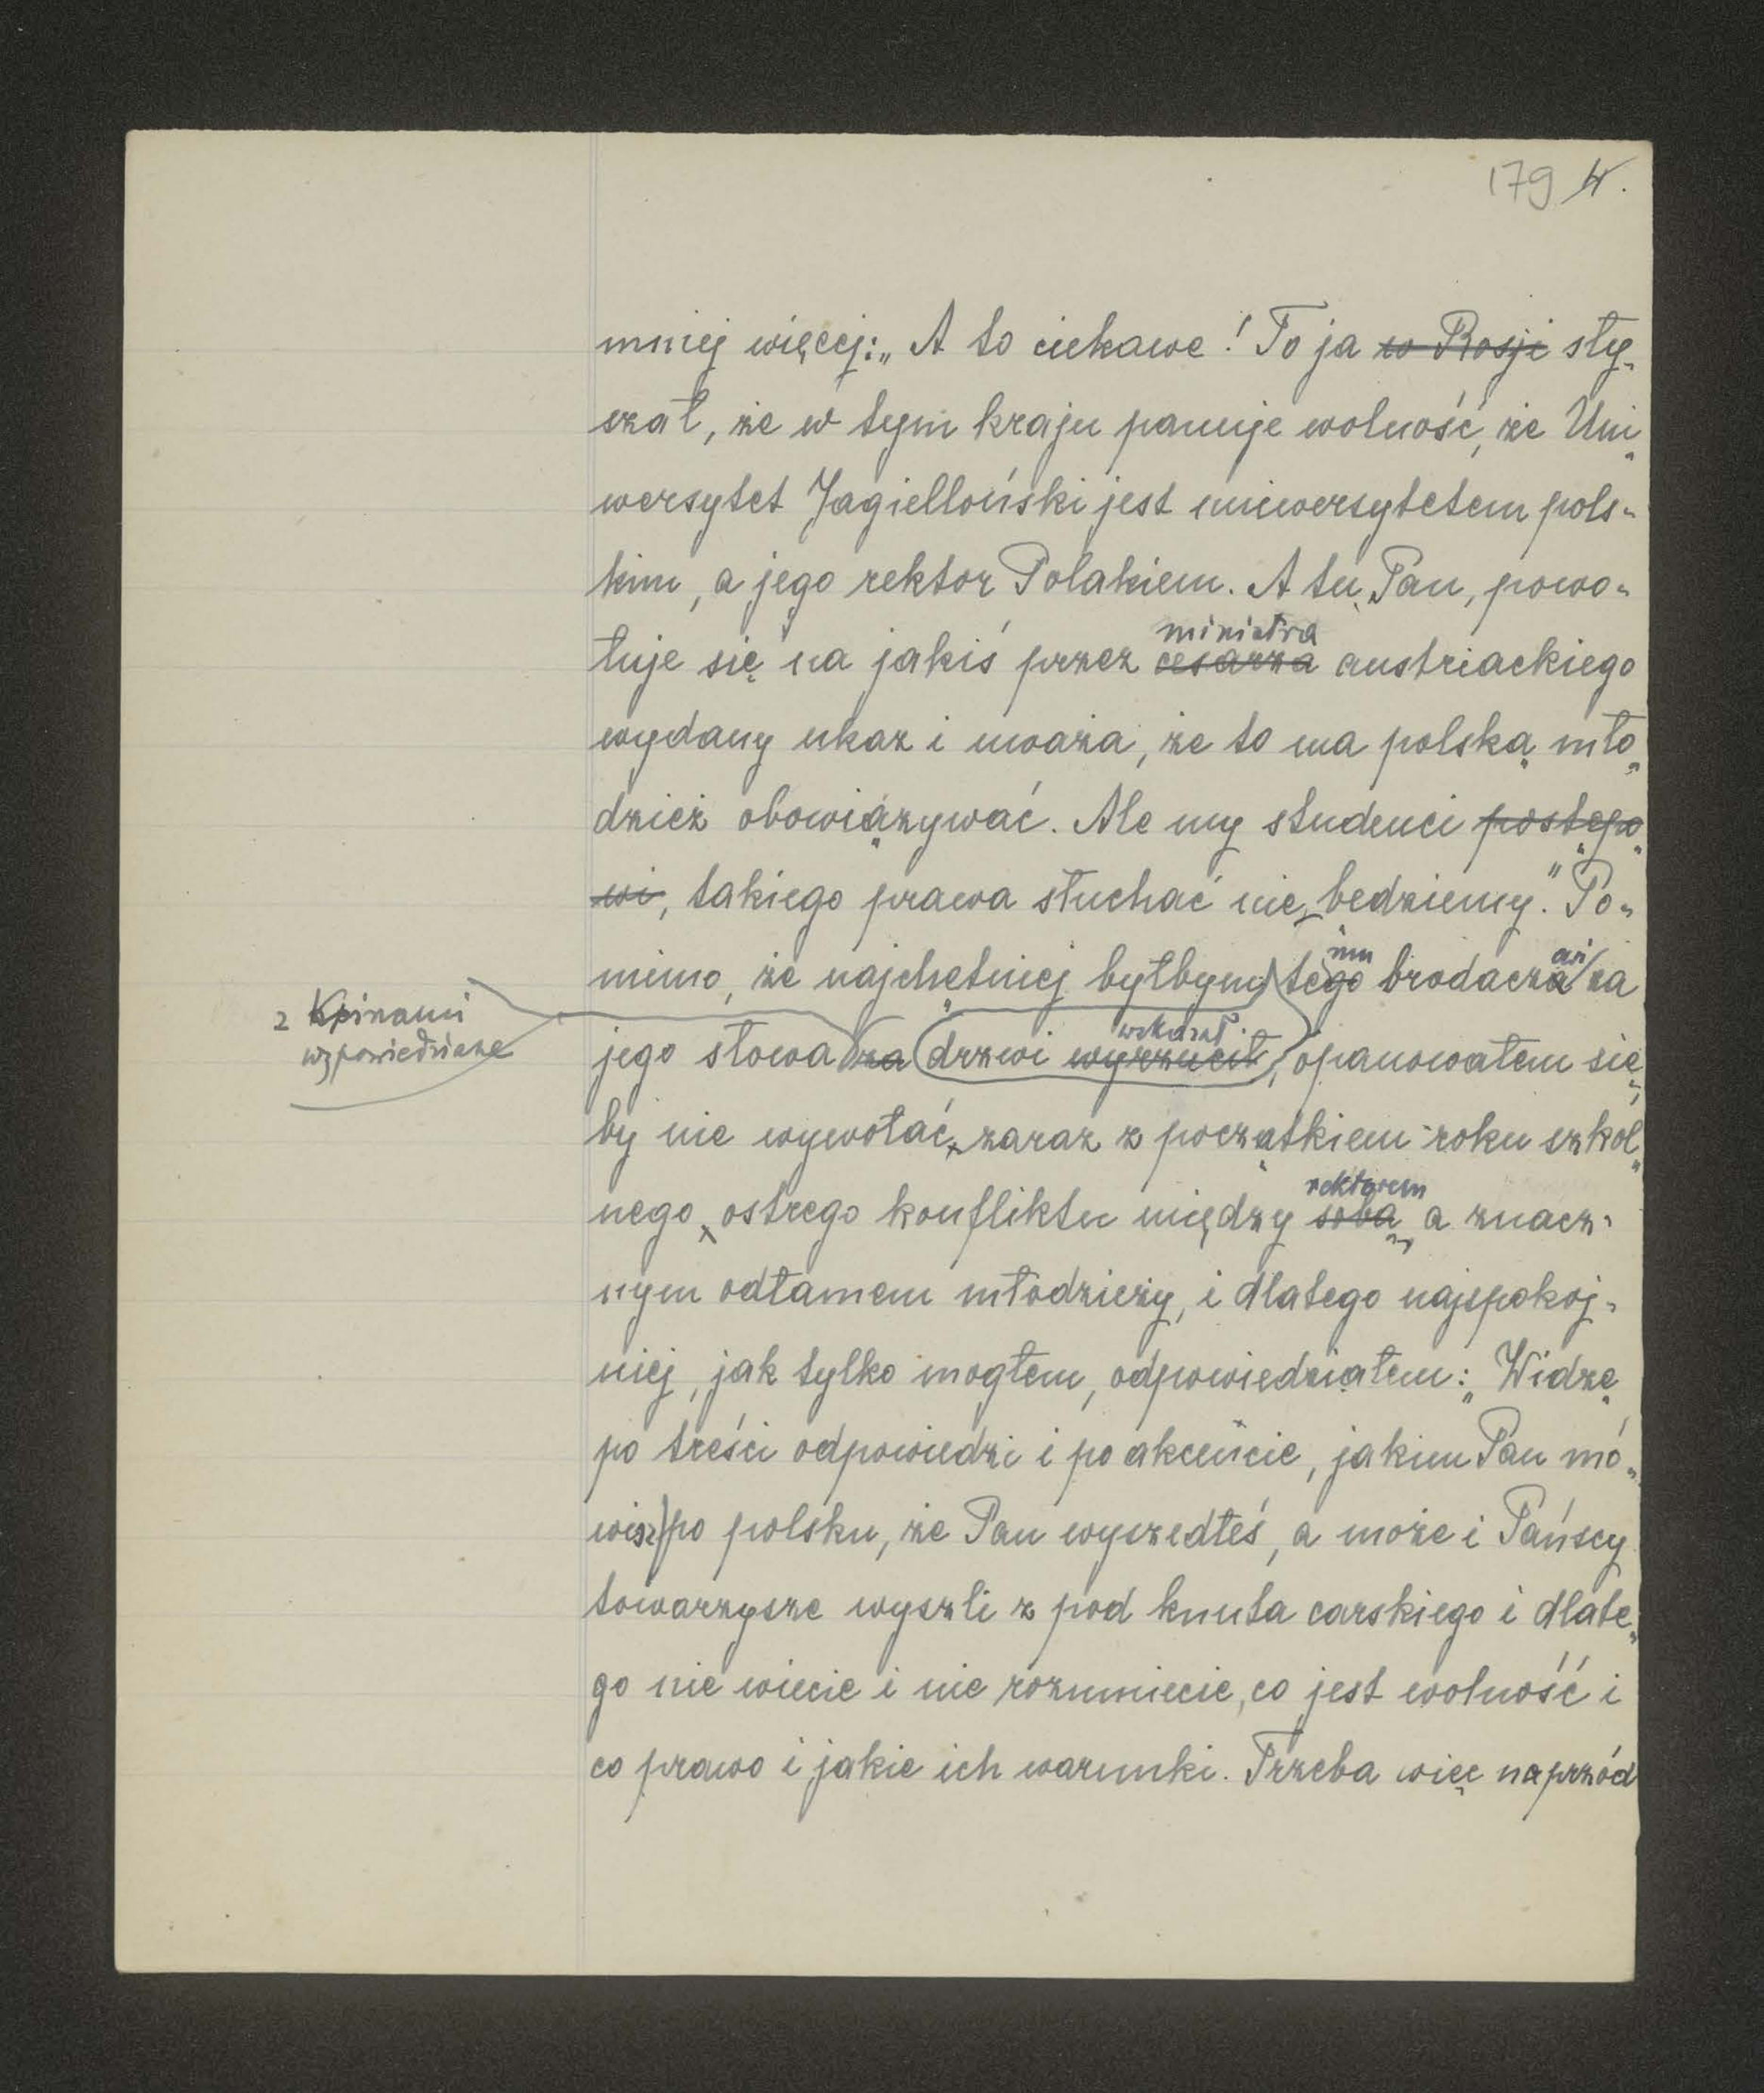 179 4.
mniej więcej: „A to ciekawe! To ja w Rosji sły-
szał, że w tym kraju panuje wolność, że Uni-
wersytet Jagielloński jest uniwersytetem pols-
kim, a jego rektor Polakiem. A tu, Pan, powo-
ministra
łuje się na jakiś przez cesarza austriackiego
wydany ukaz i uważa, że to ma polską mło-
dzież obowiązywać. Ale my studenci postępo-
wi, takiego prawa słuchać nie będziemy." Po-
mu owi
mimo, że najchętniej byłbym tego brodacza za
z kpinami
wypowiedziane
wskazał
jego słowa za drzwi wyrzucił, opanowałem się,
by nie wywołać, zaraz z początkiem roku szkol-
rektorem
nego, ostrego konfliktu między sobą, a znacz-
nym odłamem młodzieży, i dlatego najspokoj-
niej, jak tylko mogłem, odpowiedziałem: „Widzę
po treści odpowiedzi i po akcencie, jakim Pan mó-
wisz po polsku, że Pan wyszedłeś, a może i Pańscy
towarzysze wyszli z pod knuta carskiego i dlate-
go nie wiecie i nie rozumiecie, co jest wolność i
co prawo i jakie ich warunki. Trzeba więc naprzód